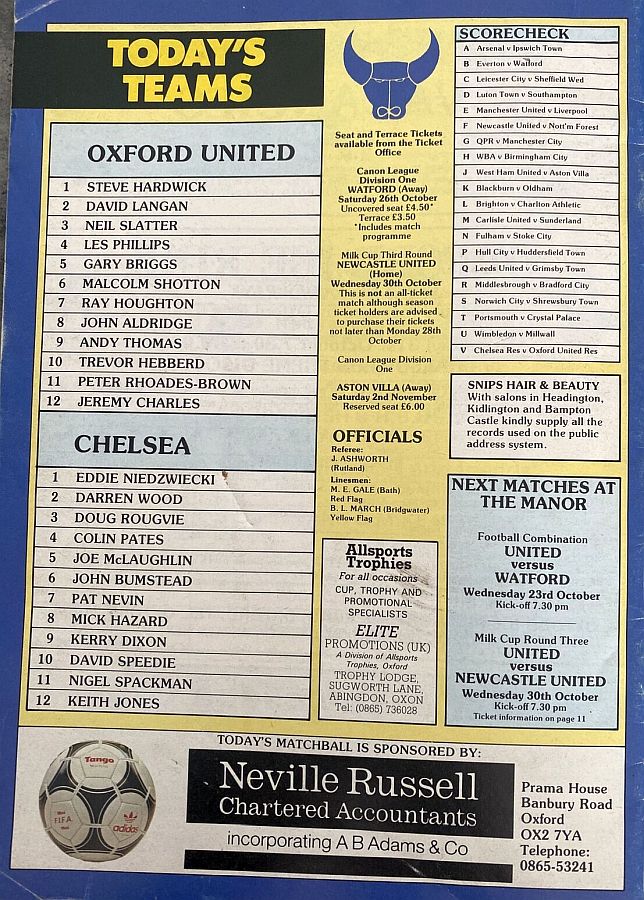 TODAY'S
TEAMS
OXFORD UNITED
1 STEVE HARDWICK
2 DAVID LANGAN
3 NEIL SLATTER
4 LES PHILLIPS
5 GARY BRIGGS
6 MALCOLM SHOTTON
7 RAY HOUGHTON
8 JOHN ALDRIDGE
9 ANDY THOMAS
10 TREVOR HEBBERD
11 PETER RHOADES-BROWN
12 JEREMY CHARLES
CHELSEA
1 EDDIE NIEDZWIECKI
2 DARREN WOOD
3 DOUG ROUGVIE
4 COLIN PATES
5 JOE McLAUGHLIN
6 JOHN BUMSTEAD
7 PAT NEVIN
8 MICK HAZARD
9 KERRY DIXON
10 DAVID SPEEDIE
11 NIGEL SPACKMAN
12 KEITH JONES
Seat and Terrace Tickets
available from the Ticket
Office
Canon League
Division One
WATFORD (Away)
Saturday 26th October
Uncovered seat £4.50*
Terrace £3.50
*Includes match
programme
Milk Cup Third Round
NEWCASTLE UNITED
(Home)
Wednesday 30th October
This is not an all-ticket
match although season
ticket holders are advised
to purchase their tickets
not later than Monday 28th
October
Canon League Division
One
ASTON VILLA (Away)
Saturday 2nd November
Reserved seat £6.00
OFFICIALS
Referee:
J. ASHWORTH
(Rutland)
Linesmen:
M. E. GALE (Bath)
Red Flag
B. L. MARCH (Bridgwater)
Yellow Flag
Allsports
Trophies
For all occasions
CUP, TROPHY AND
PROMOTIONAL
SPECIALISTS
ELITE
PROMOTIONS (UK)
A Division of Allsports
Trophies, Oxford
TROPHY LODGE,
SUGWORTH LANE,
ABINGDON, OXON
Tel: (0865) 736028
SCORECHECK
A Arsenal v Ipswich Town
B Everton v Watford
C Leicester City v Sheffield Wed
D Luton Town v Southampton
E Manchester United v Liverpool
F Newcastle United v Nott'm Forest
G QPR v Manchester City
H WBA v Birmingham City
J West Ham United v Aston Villa
K Blackburn v Oldham
L Brighton v Charlton Athletic
M Carlisle United v Sunderland
N Fulham v Stoke City
P Hull City v Huddersfield Town
Q Leeds United v Grimsby Town
R Middlesbrough v Bradford City
S Norwich City v Shrewsbury Town
T Portsmouth v Crystal Palace
U Wimbledon v Millwall
V Chelsea Res v Oxford United Res
SNIPS HAIR & BEAUTY
With salons in Headington,
Kidlington and Bampton
Castle kindly supply all the
records used on the public
address system.
NEXT MATCHES AT
THE MANOR
Football Combination
UNITED
versus
WATFORD
Wednesday 23rd October
Kick-off 7.30 pm
Milk Cup Round Three
UNITED
versus
NEWCASTLE UNITED
Wednesday 30th October
Kick-off 7.30 pm
Ticket information on page 11
TODAY'S MATCHBALL IS SPONSORED BY:
Tango
FIFA
adidas
Neville Russell
Chartered Accountants
incorporating A B Adams & Co
Prama House
Banbury Road
Oxford
OX2 7YA
Telephone:
0865-53241